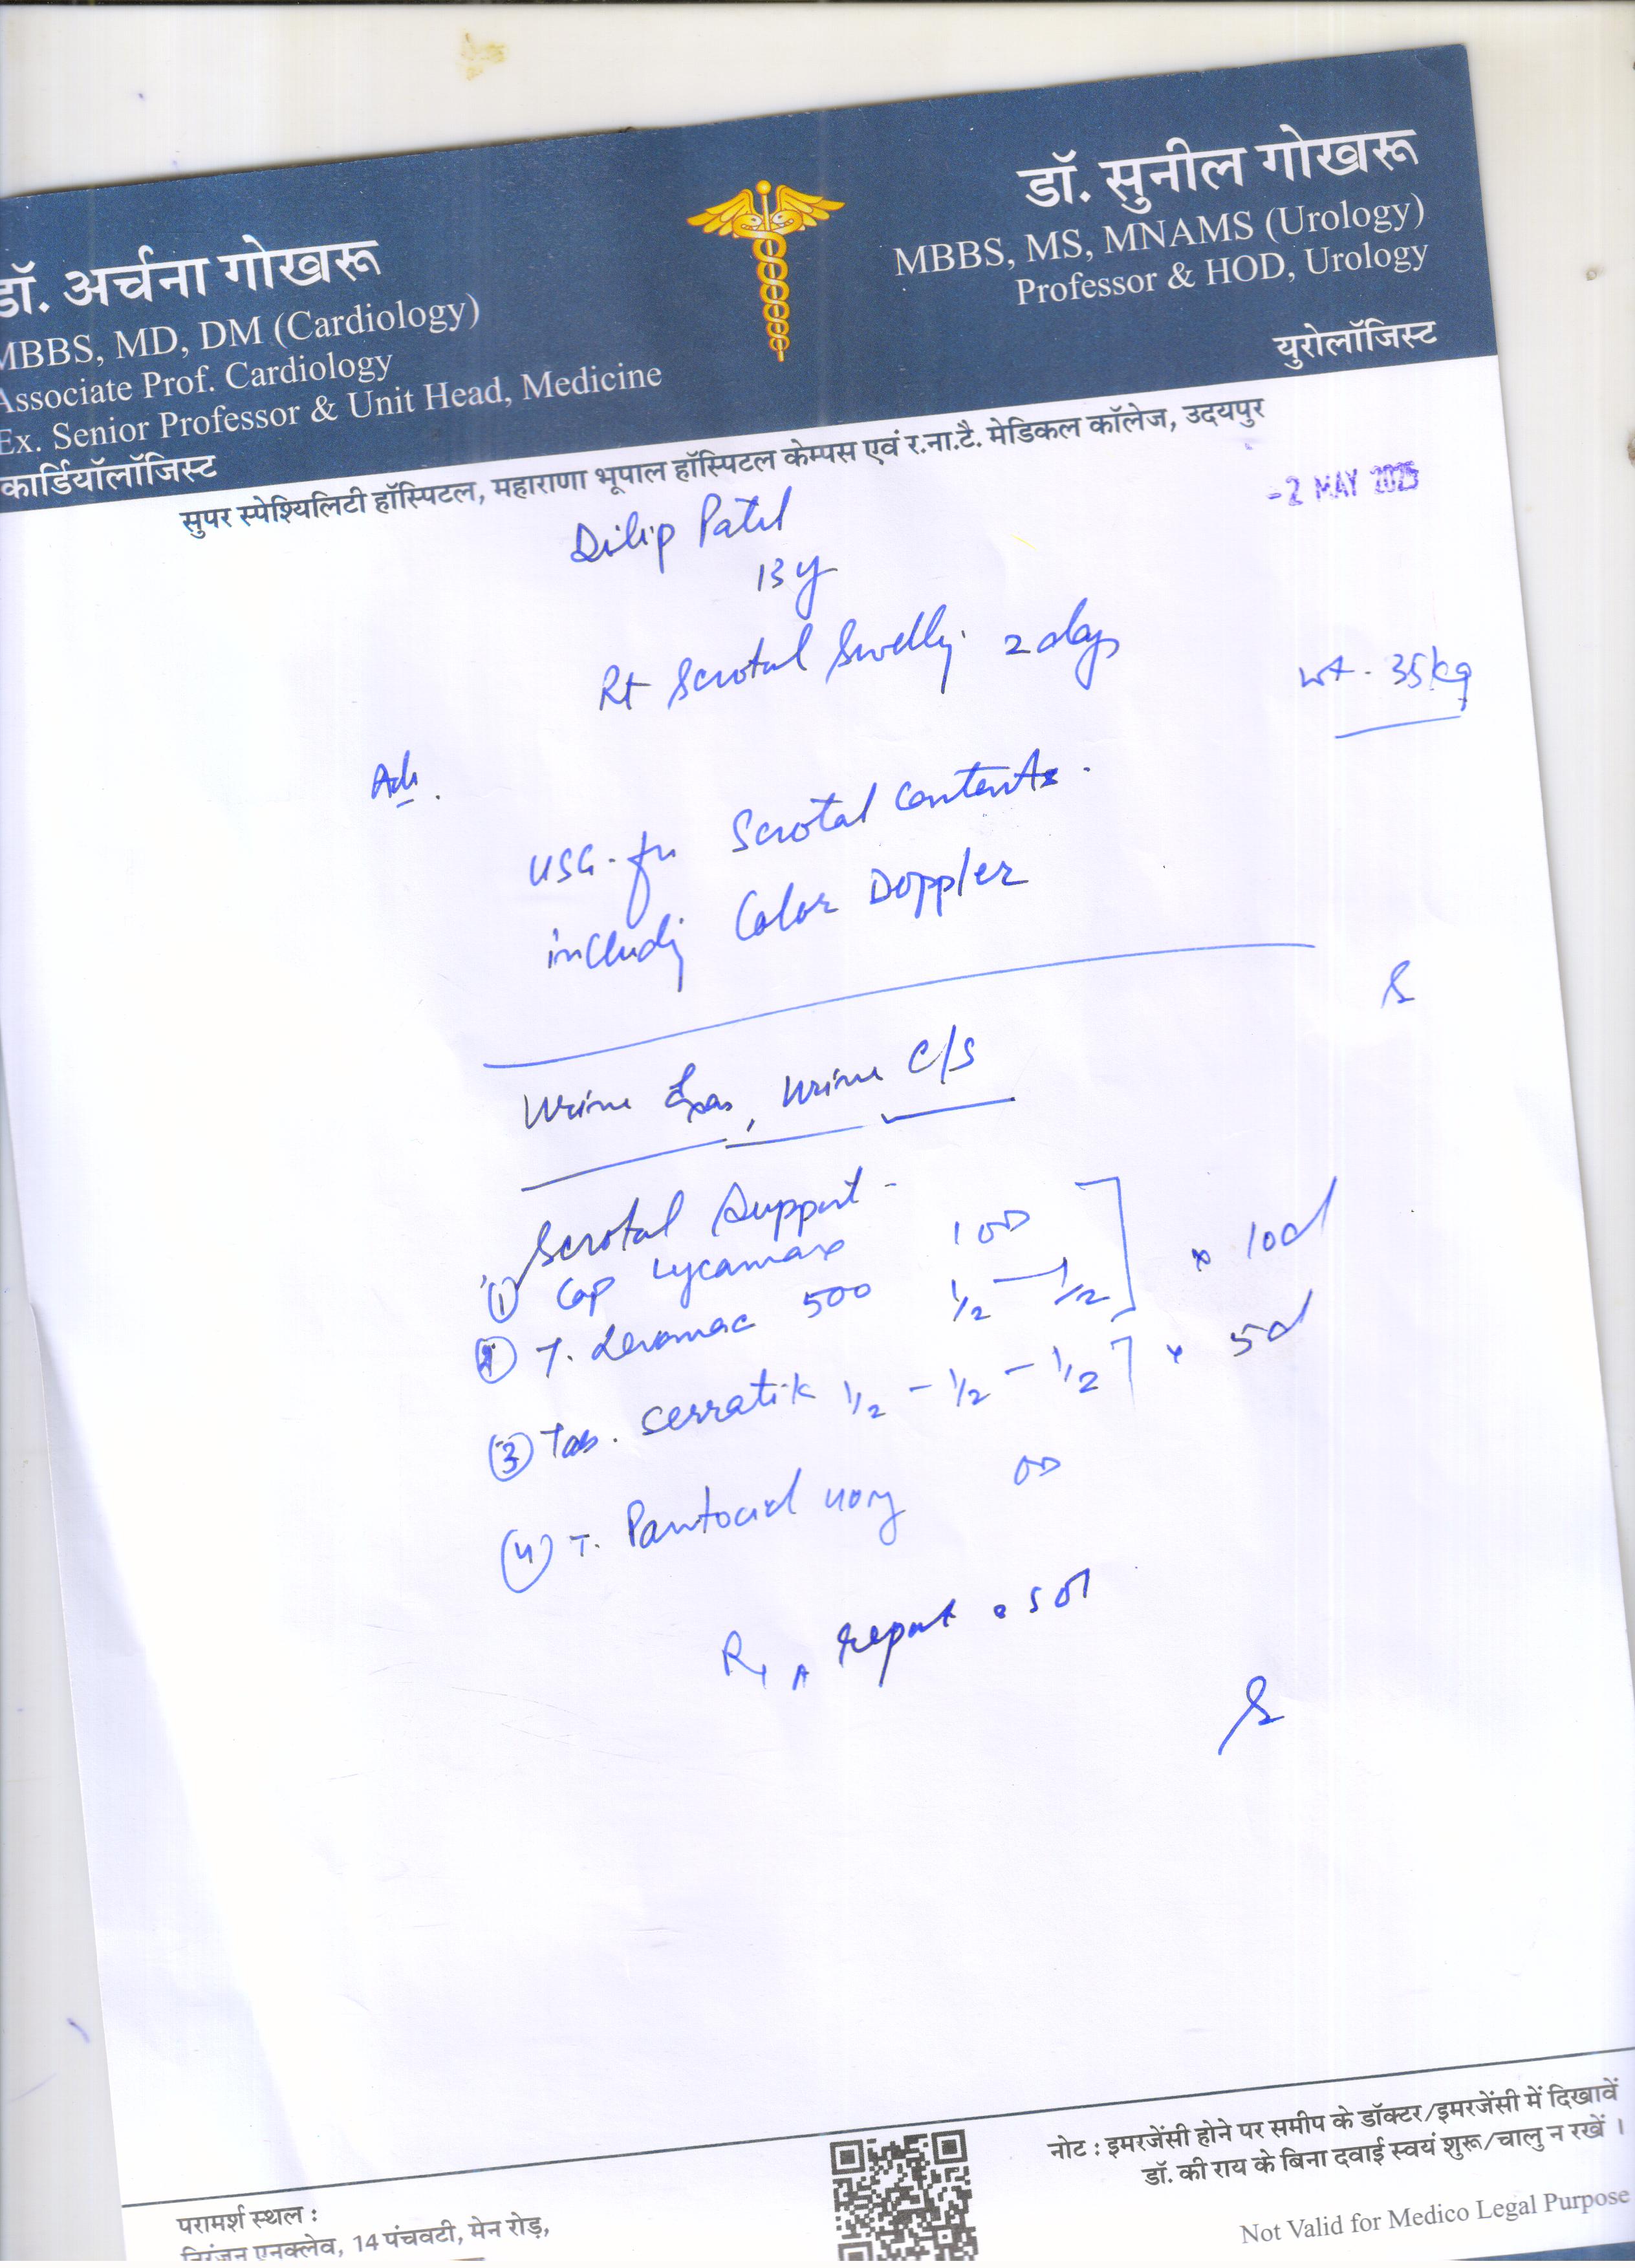 डॉ. अर्चना गोखरू
MBBS, MD, DM (Cardiology)
Associate Prof. Cardiology
Ex. Senior Professor & Unit Head, Medicine
कार्डियॉलॉजिस्ट
डॉ. सुनील गोखरू
MBBS, MS, MNAMS (Urology)
Professor & HOD, Urology
युरोलॉजिस्ट
सुपर स्पेश्यिलिटी हॉस्पिटल, महाराणा भूपाल हॉस्पिटल केम्पस एवं र.ना.टै. मेडिकल कॉलेज, उदयपुर
-2 MAY 2025
Dilip Patel
13 y
Rt Scrotal Swelling 2 days
wt. 35kg
Adv.
USG. for Scrotal Contents.
including Color Doppler
Urine Exam, Urine C/S
Scrotal Support -
(1) Cap Lycamax 1 OD
(2) T. 500 1/2 — 1/2 ] x 10d
(3) Tab. 1/2 - 1/2 - 1/2 ] x 5d
(4) T. Pantocid 40mg OD
report
नोट : इमरजेंसी होने पर समीप के डॉक्टर/इमरजेंसी में दिखावें
डॉ. की राय के बिना दवाई स्वयं शुरू/चालु न रखें ।
Not Valid for Medico Legal Purpose
परामर्श स्थल :
निरंजन एनक्लेव, 14 पंचवटी, मेन रोड़,